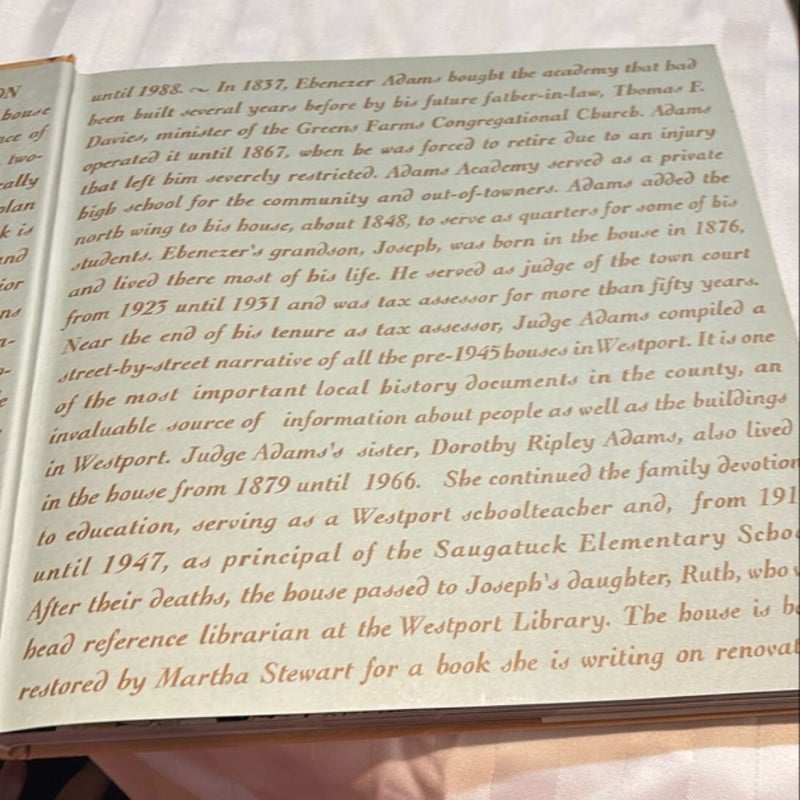 ON
house
nce of
two-
cally
plan
k is
and
ior
ns
n-
e
until 1988. ~ In 1837, Ebenezer Adams bought the academy that had
been built several years before by his future father-in-law, Thomas F.
Davies, minister of the Greens Farms Congregational Church. Adams
operated it until 1867, when he was forced to retire due to an injury
that left him severely restricted. Adams Academy served as a private
high school for the community and out-of-towners. Adams added the
north wing to his house, about 1848, to serve as quarters for some of his
students. Ebenezer's grandson, Joseph, was born in the house in 1876,
and lived there most of his life. He served as judge of the town court
from 1923 until 1931 and was tax assessor for more than fifty years.
Near the end of his tenure as tax assessor, Judge Adams compiled a
street-by-street narrative of all the pre-1945 houses in Westport. It is one
of the most important local history documents in the county, an
invaluable source of information about people as well as the buildings
in Westport. Judge Adams's sister, Dorothy Ripley Adams, also lived
in the house from 1879 until 1966. She continued the family devotion
to education, serving as a Westport schoolteacher and, from 191
until 1947, as principal of the Saugatuck Elementary Schoo
After their deaths, the house passed to Joseph's daughter, Ruth, who
head reference librarian at the Westport Library. The house is be
restored by Martha Stewart for a book she is writing on renovat